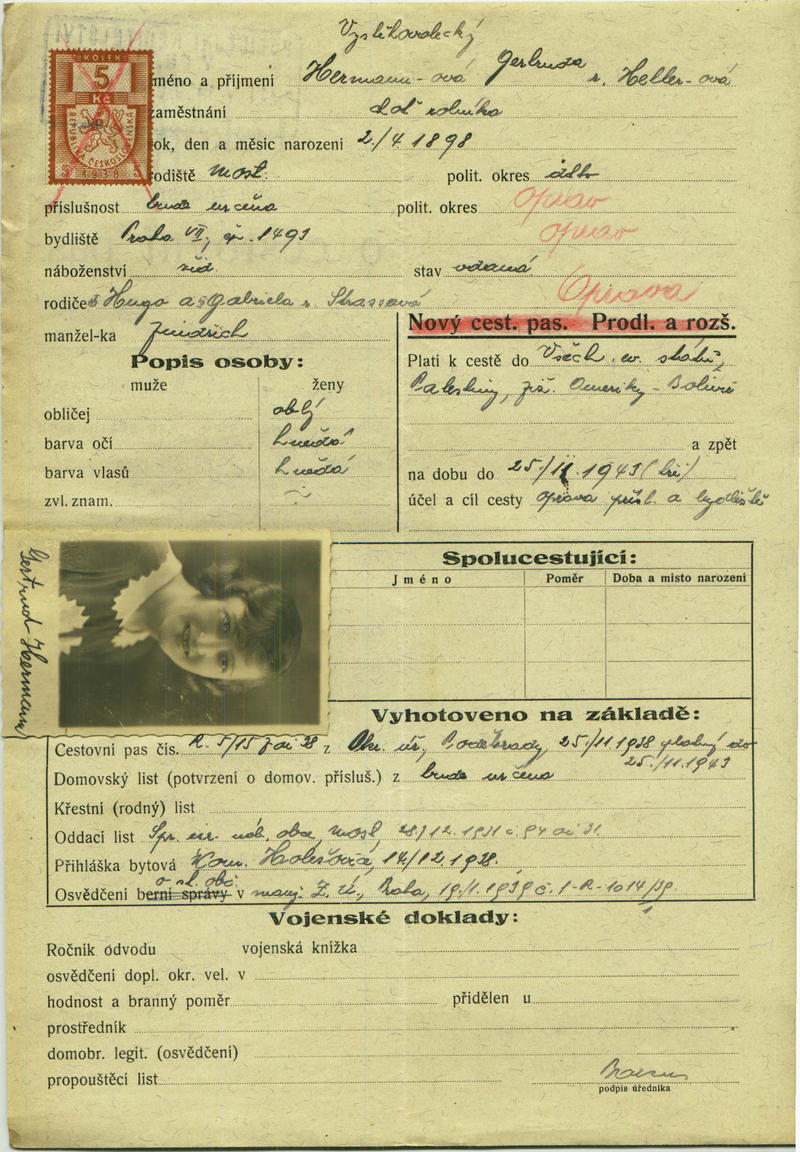 KOLEK
5
Kč
REPUBLIKA ČESKOSLOVENSKÁ
1938
Vystěhovalecký
jméno a příjmení Hermann-ová Gertruda r. Heller-ová
zaměstnání rolníka
rok, den a měsíc narození 2./4. 1898
rodiště most. polit. okres dtto
příslušnost bude určena polit. okres Oprav
bydliště Praha VII, čp. 1493 oprav
náboženství žid. stav vdaná
rodiče Hugo a Gabriela r. Strassová Oprava
manžel-ka Jindřich
Nový cest. pas. Prodl. a rozš.
Popis osoby:
muže ženy
obličej oblý
barva očí hnědá
barva vlasů hnědá
zvl. znam.
Platí k cestě do Všech ev. států,
Palestiny, již. Ameriky - Bolivie
a zpět
na dobu do 25./11. 1943
účel a cíl cesty oprava přísl. a bydliště
Gertrud Hermann
Spolucestující:
Jméno Poměr Doba a místo narození
Vyhotoveno na základě:
Cestovní pas čís. z Okr. úř. Poděbrady, 25./11. 1938 platný do
25./11. 1943
Domovský list (potvrzení o domov. přísluš.) z bude určena
Křestní (rodný) list
Oddací list isr. náb. obce, most, 28/12. 1921 č. 94
Přihláška bytová Kom. Holešovice, 14/12. 1938.
o st. obč.
Osvědčení berní správy v Z. Ú., Praha, 19./1. 1939 č. 1-R-1014/39.
Vojenské doklady:
Ročník odvodu vojenská knížka
osvědčení dopl. okr. vel. v
hodnost a branný poměr přidělen u
prostředník
domobr. legit. (osvědčení)
propouštěcí list
podpis úředníka